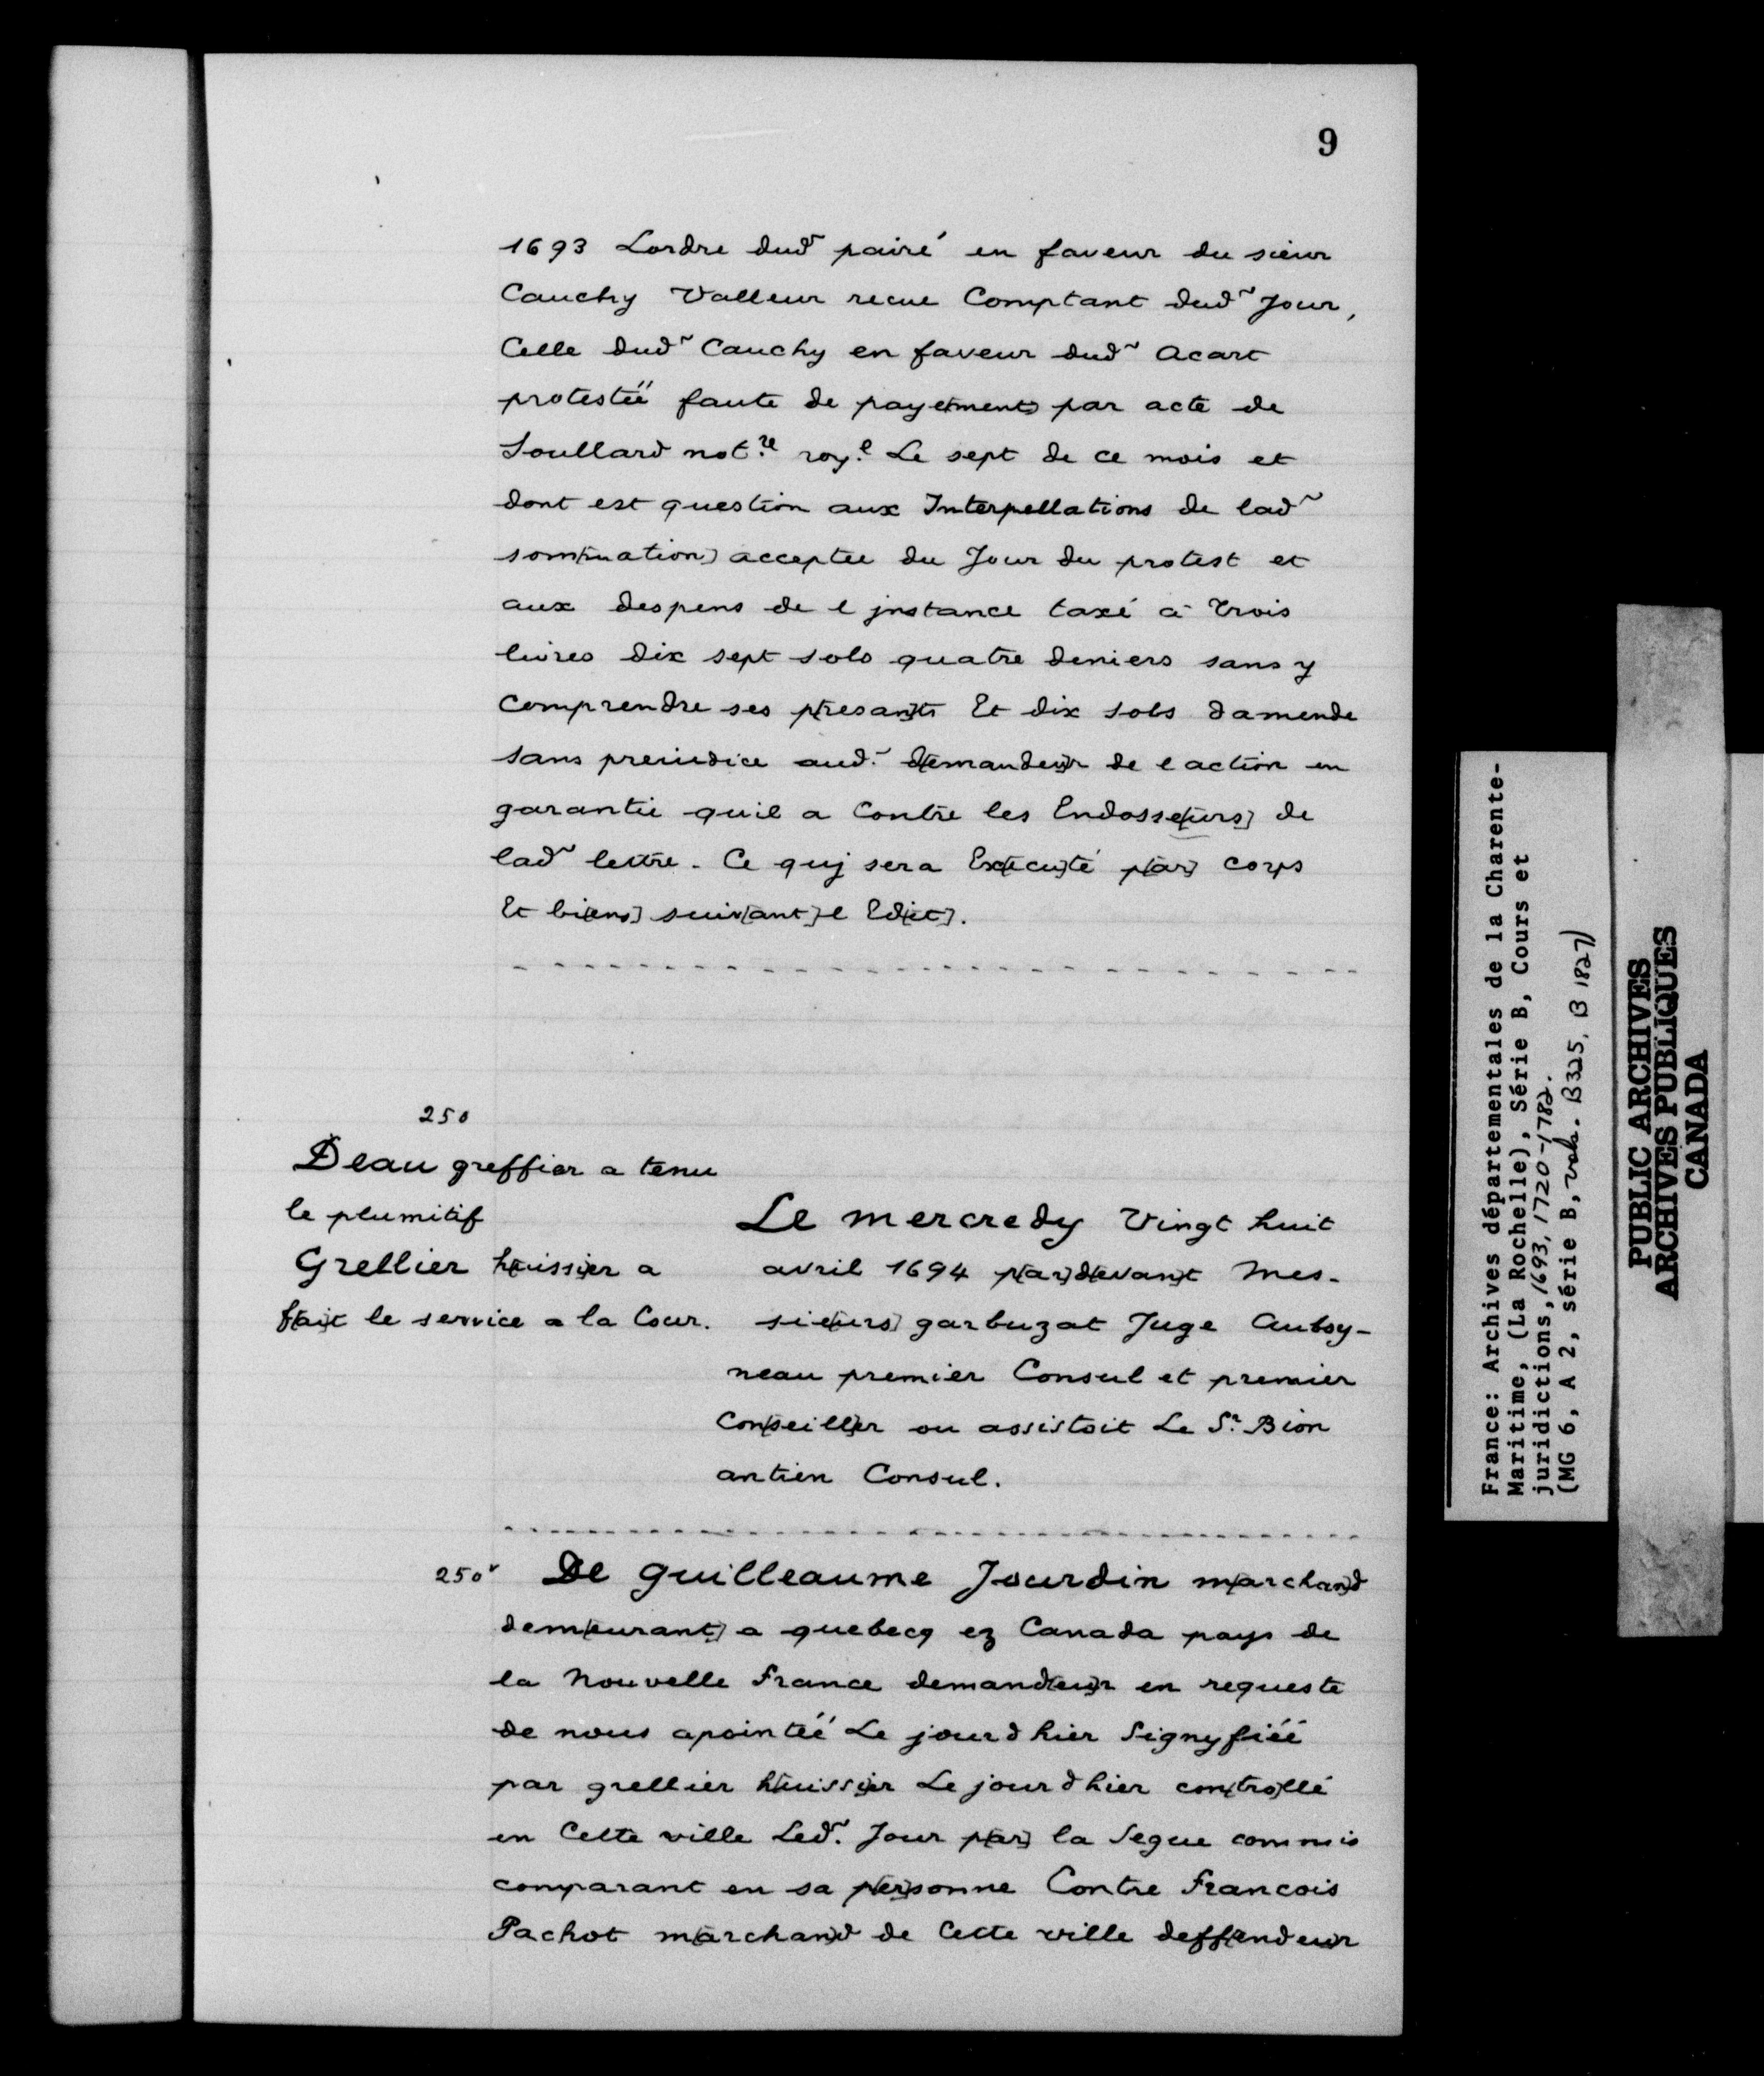 9
1693 Lordre dud~ pairé en faveur du sieur
Cauchy Valleur recue Comptant dud~ Jour,
Celle dud~ Cauchy en faveur dud~ Acart
protestéé faute de paye[ment] par acte de
Soullard not.re roy.l Le sept de ce mois et
dont est question aux Interpellations de lad~
som[mation] acceptee du Jour du protest et
aux despens de l jnstance taxé a trois
livres dix sept sols quatre deniers sans y
comprendre ses p[resan]ts Et dix sols damende
sans preiudice aud.~ d[emandeu]r de l action en
garantie quil a Contre les Endosse[urs] de
lad~ lettre. Ce quj sera Ex[ecu]té p[ar] corps
Et bi[ens] suiv[ant] l Ed[it].
250
Deau greffier a tenu
le plumitif
Grellier h[uissi]er a
f[ai]t le service a la Cour.
Le mercredy Vingt huit
avril 1694 p[ar] d[evan]t Mes-
sie[urs] garbuzat Juge Auboy-
neau premier Consul et premier
Con[seill]er ou assistoit Le Sr. Bion
antien Consul.
250v De Guilleaume Jourdin m[archan]d
dem[eurant] a quebecq ez Canada pays de
la Nouvelle France demand[eu]r en requeste
de nous apointéé Le jourdhier Signyfiéé
par grellier h[uissi]er Le jourdhier con[tro]llé
en Cette ville Led.~ Jour p[ar] la Segue commis
comparant en sa p[er]sonne Contre Francois
Pachot m[archan]d de Cette ville deff[endeu]r
France: Archives départementales de la Charente-
Maritime, (La Rochelle), Série B, Cours et
juridictions, 1693, 1720-1782.
(MG 6, A 2, série B, vols. B325, B 1827)
PUBLIC ARCHIVES
ARCHIVES PUBLIQUES
CANADA